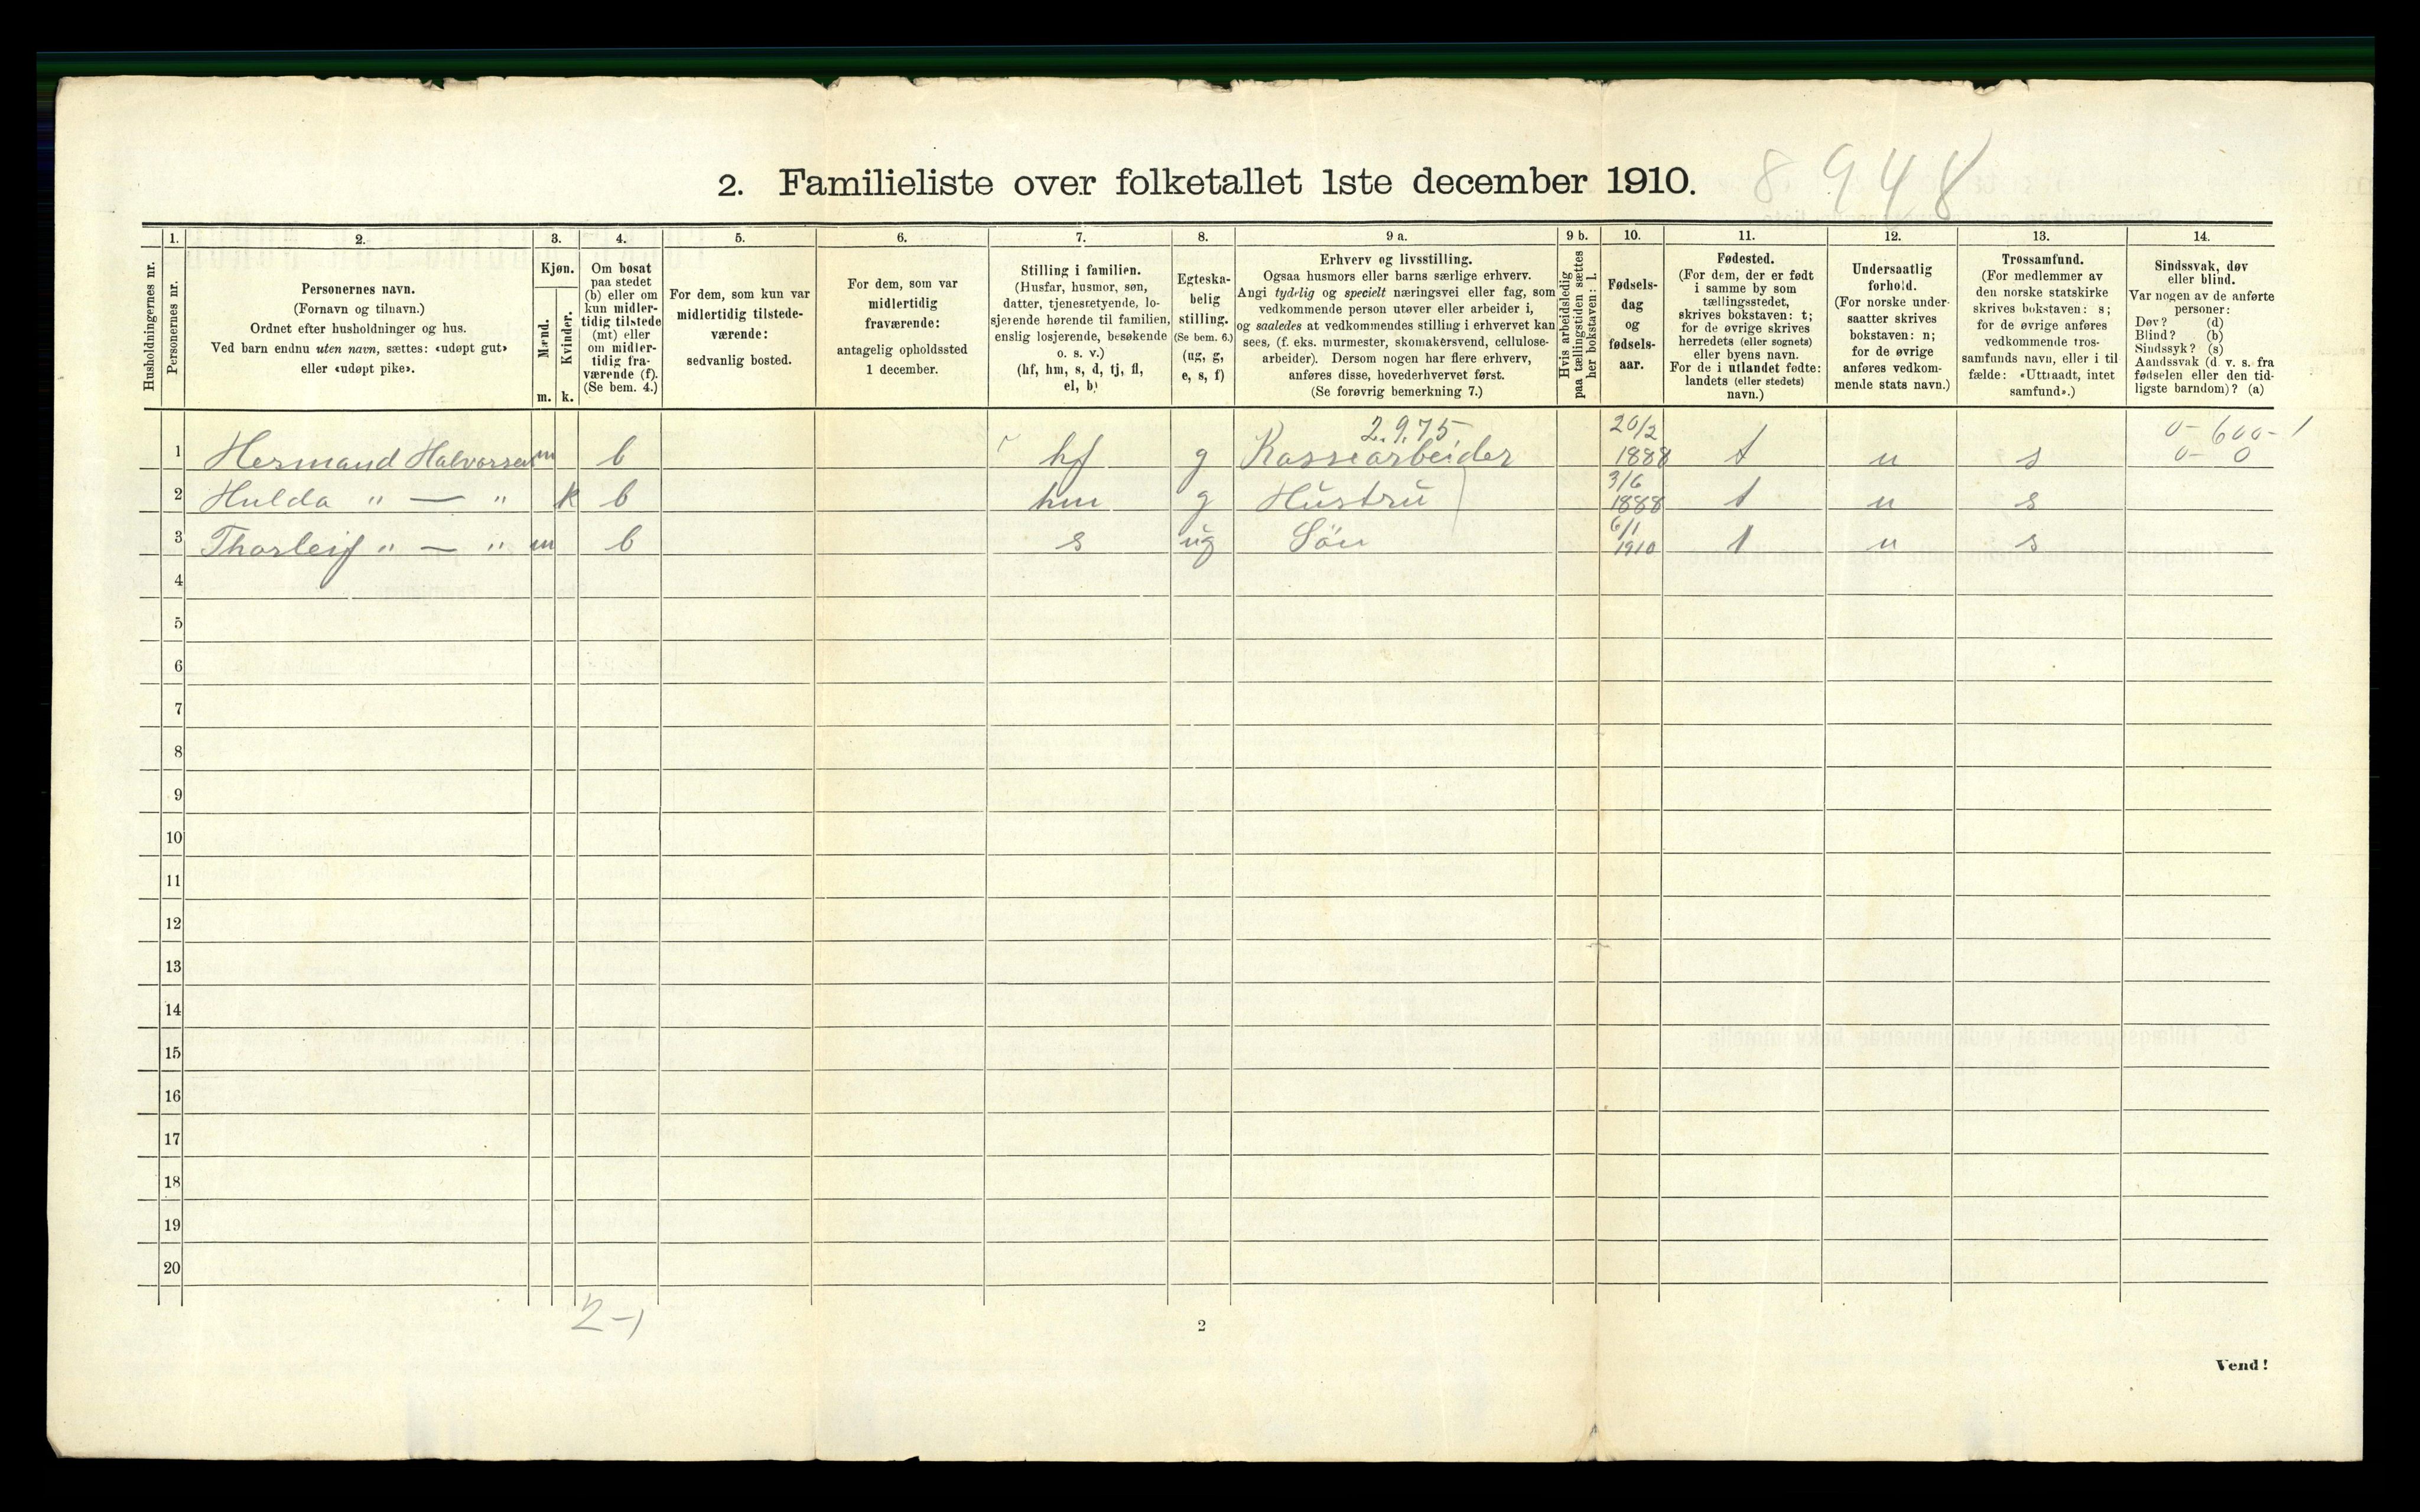 8 948
2. Familieliste over folketallet 1ste december 1910.
1. 2. 3. 4. 5. 6. 7. 8. 9 a. 9 b. 10. 11. 12. 13. 14.
Husholdningernes nr.
Personernes nr.
Personernes navn.
(Fornavn og tilnavn.)
Ordnet efter husholdninger og hus.
Ved barn endnu uten navn, sættes: «udøpt gut»
eller «udøpt pike».
Kjøn.
Mænd.
Kvinder.
m. k.
Om bosat
paa stedet
(b) eller om
kun midler-
tidig tilstede
(mt) eller
om midler-
tidig fra-
værende (f).
(Se bem. 4.)
For dem, som kun var
midlertidig tilstede-
værende:
sedvanlig bosted.
For dem, som var
midlertidig
fraværende:
antagelig opholdssted
1 december.
Stilling i familien.
(Husfar, husmor, søn,
datter, tjenestetyende, lo-
sjerende hørende til familien,
enslig losjerende, besøkende
o. s. v.)
(hf, hm, s, d, tj, fl,
el, b)
Egteska-
belig
stilling.
(Se bem. 6.)
(ug, g,
e, s, f)
Erhverv og livsstilling.
Ogsaa husmors eller barns særlige erhverv.
Angi tydelig og specielt næringsvei eller fag, som
vedkommende person utøver eller arbeider i,
og saaledes at vedkommendes stilling i erhvervet kan
sees, (f. eks. murmester, skomakersvend, cellulose-
arbeider). Dersom nogen har flere erhverv,
anføres disse, hovederhvervet først.
(Se forøvrig bemerkning 7.)
Hvis arbeidsledig
paa tællingstiden sættes
her bokstaven: l.
Fødsels-
dag
og
fødsels-
aar.
Fødested.
(For dem, der er født
i samme by som
tællingsstedet,
skrives bokstaven: t;
for de øvrige skrives
herredets (eller sognets)
eller byens navn.
For de i utlandet fødte:
landets (eller stedets)
navn.)
Undersaatlig
forhold.
(For norske under-
saatter skrives
bokstaven: n;
for de øvrige
anføres vedkom-
mende stats navn.)
Trossamfund.
(For medlemmer av
den norske statskirke
skrives bokstaven: s;
for de øvrige anføres
vedkommende tros-
samfunds navn, eller i til-
fælde: «Uttraadt, intet
samfund».)
Sindssvak, døv
eller blind.
Var nogen av de anførte
personer:
Døv? (d)
Blind? (b)
Sindssyk? (s)
Aandssvak (d. v. s. fra
fødselen eller den tid-
ligste barndom)? (a)
2.9.75. 20/2 0-600-1
1 Hermand Halvorsen m b hf g Kassearbeider 1888 t n s 0- 0
3/6
2 Hulda " — " k b hm g Hustru 1888 t n s
6/1
3 Thorleif " — " m b s ug Søn 1910 t n s
4
5
6
7
8
9
10
11
12
13
14
15
16
17
18
19
20
2-1
2
Vend!